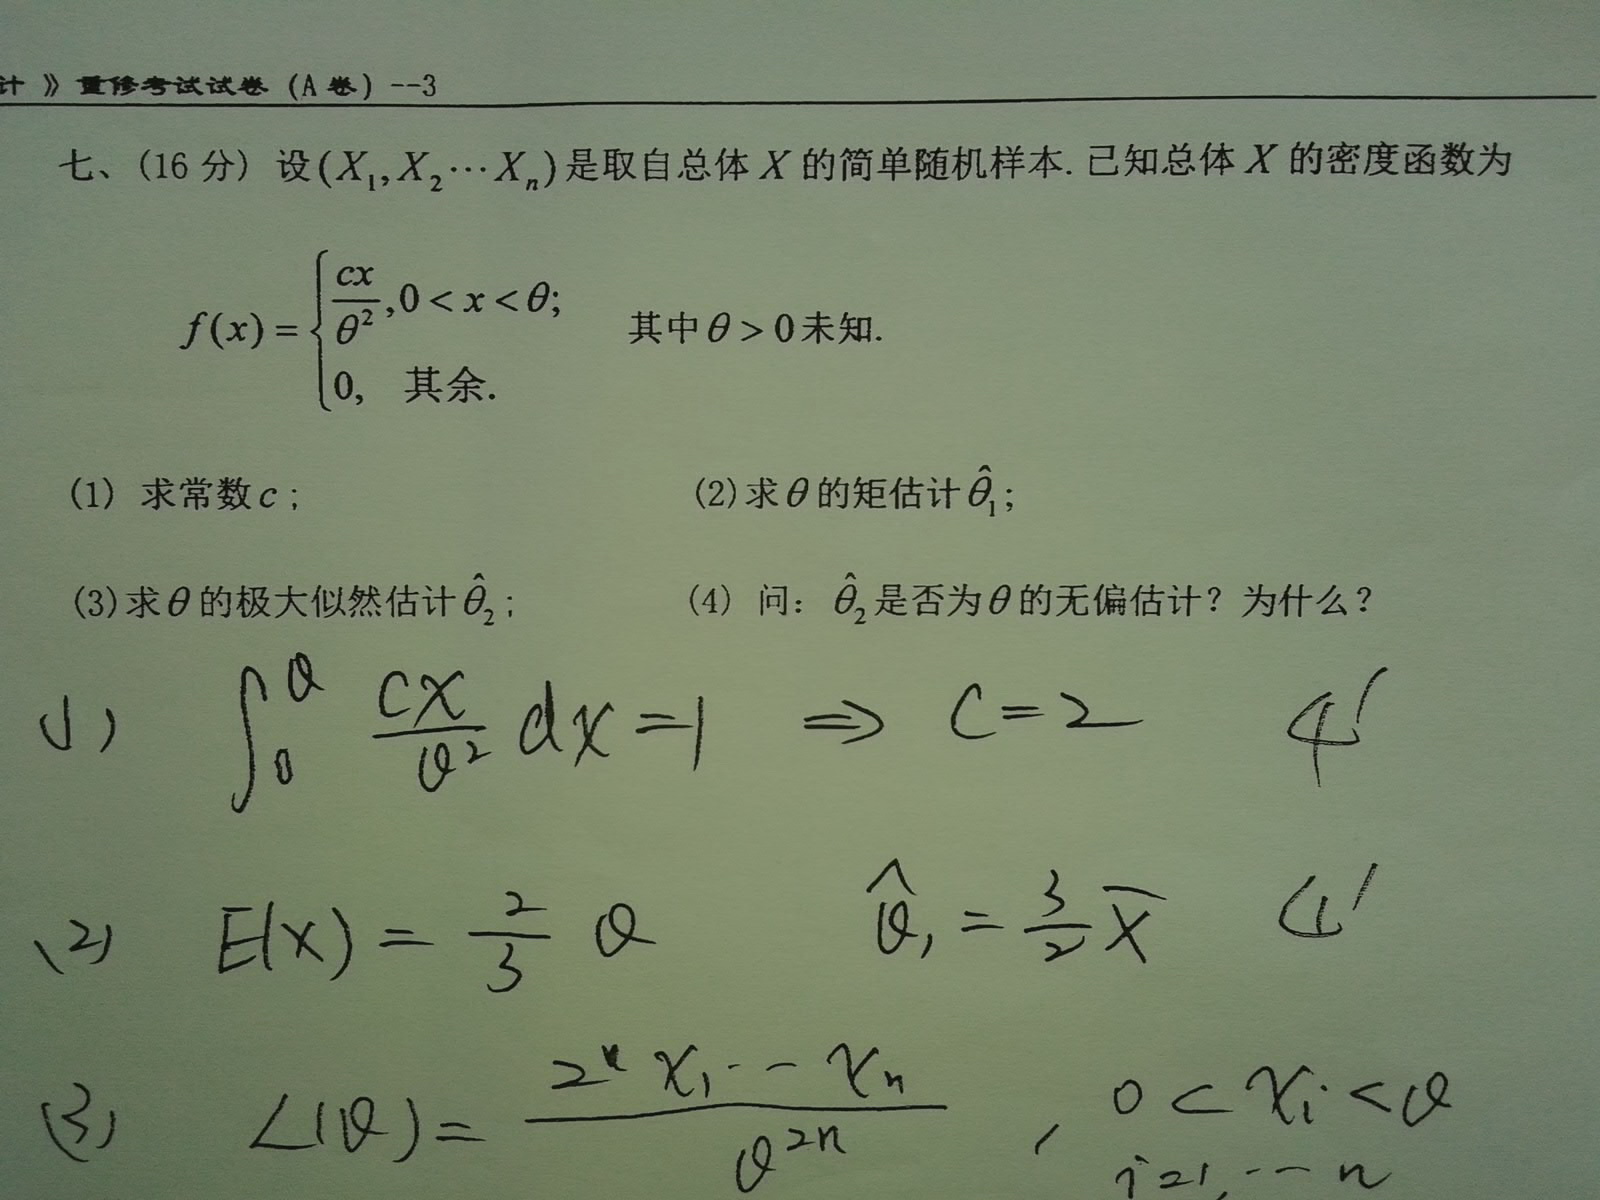 计 》重修考试试卷 (A 卷) --3
七、(16 分) 设(X₁, X₂⋯Xₙ)是取自总体 X 的简单随机样本. 已知总体 X 的密度函数为
f(x) = { cx/θ², 0 < x < θ; 其中θ > 0未知.
0, 其余.
(1) 求常数c; (2)求θ的矩估计θ̂₁;
(3)求θ的极大似然估计θ̂₂; (4) 问: θ̂₂是否为θ的无偏估计? 为什么?
(1) ∫₀^θ cx/θ² dx = 1 ⇒ c = 2 4'
(2) E(X) = 2/3 θ θ̂₁ = 3/2 X̄ 4'
(3) L(θ) = 2ⁿ x₁⋯xₙ / θ²ⁿ , 0 < xᵢ < θ
i=1,⋯n